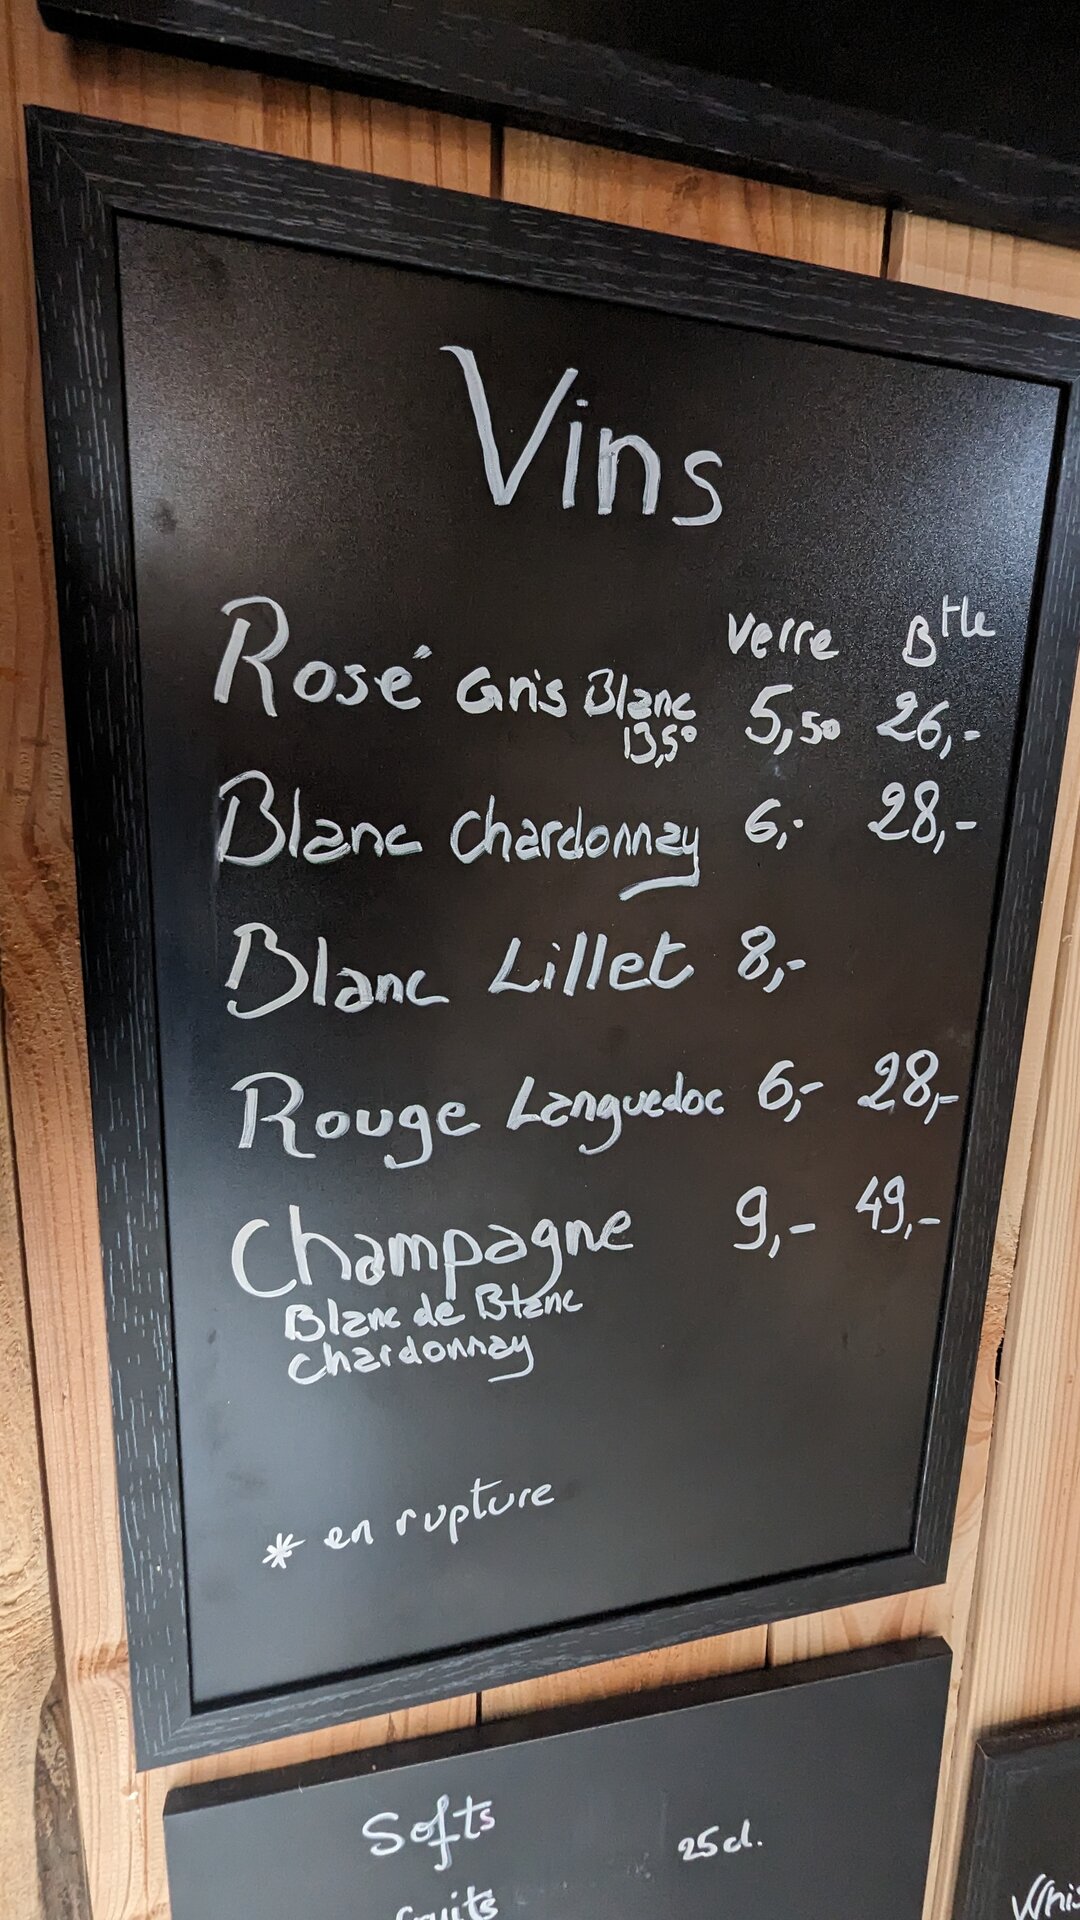 Vins
Verre Btle
Rosé Gris Blanc 5,50 26,-
13,5°
Blanc Chardonnay 6,- 28,-
Blanc Lillet 8,-
Rouge Languedoc 6,- 28,-
Champagne 9,- 49,-
Blanc de Blanc
Chardonnay
* en rupture
Softs
25cl.
fruits